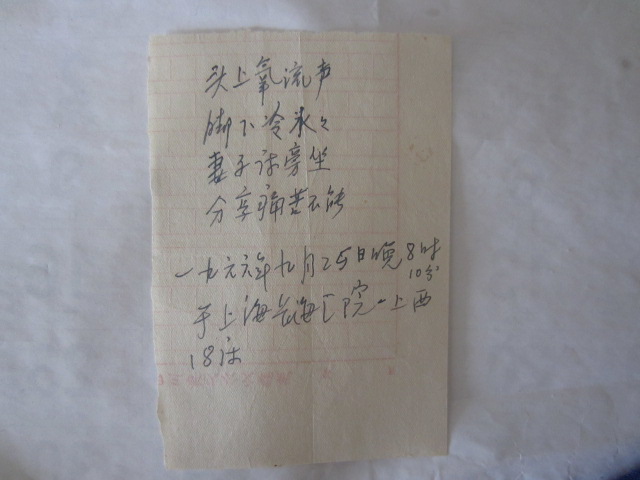 头上氧流声
脚下冷冰々
妻子床旁坐
分享痛苦不能
一九六六年九月25日晚8时
10分
于上海长海医院一上西
18床